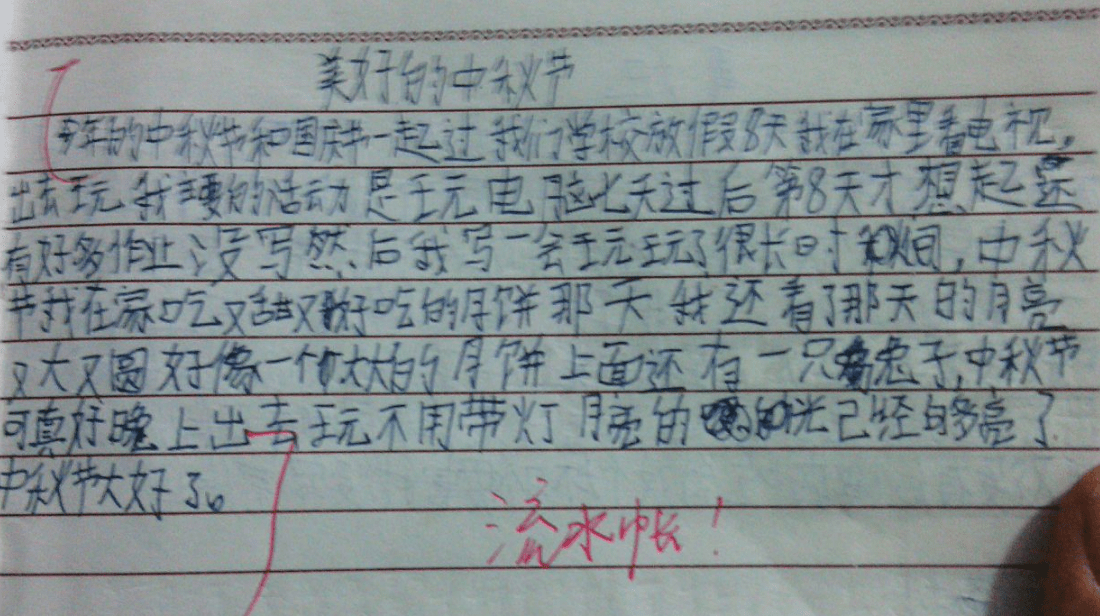 美好的中秋节
今年的中秋节和国庆节一起过我们学校放假8天我在家里看电视,
出去玩我主要的活动是玩电脑七天过后第8天才想起还
有好多作业没写然后我写一会玩玩了很长时间,中秋
节我在家吃又甜又好吃的月饼那天我还看了那天的月亮
又大又圆好像一个大大的月饼上面还有一只兔子,中秋节
可真好晚上出去玩不用带灯月亮的光已经够亮了
中秋节大好了。
流水帐!